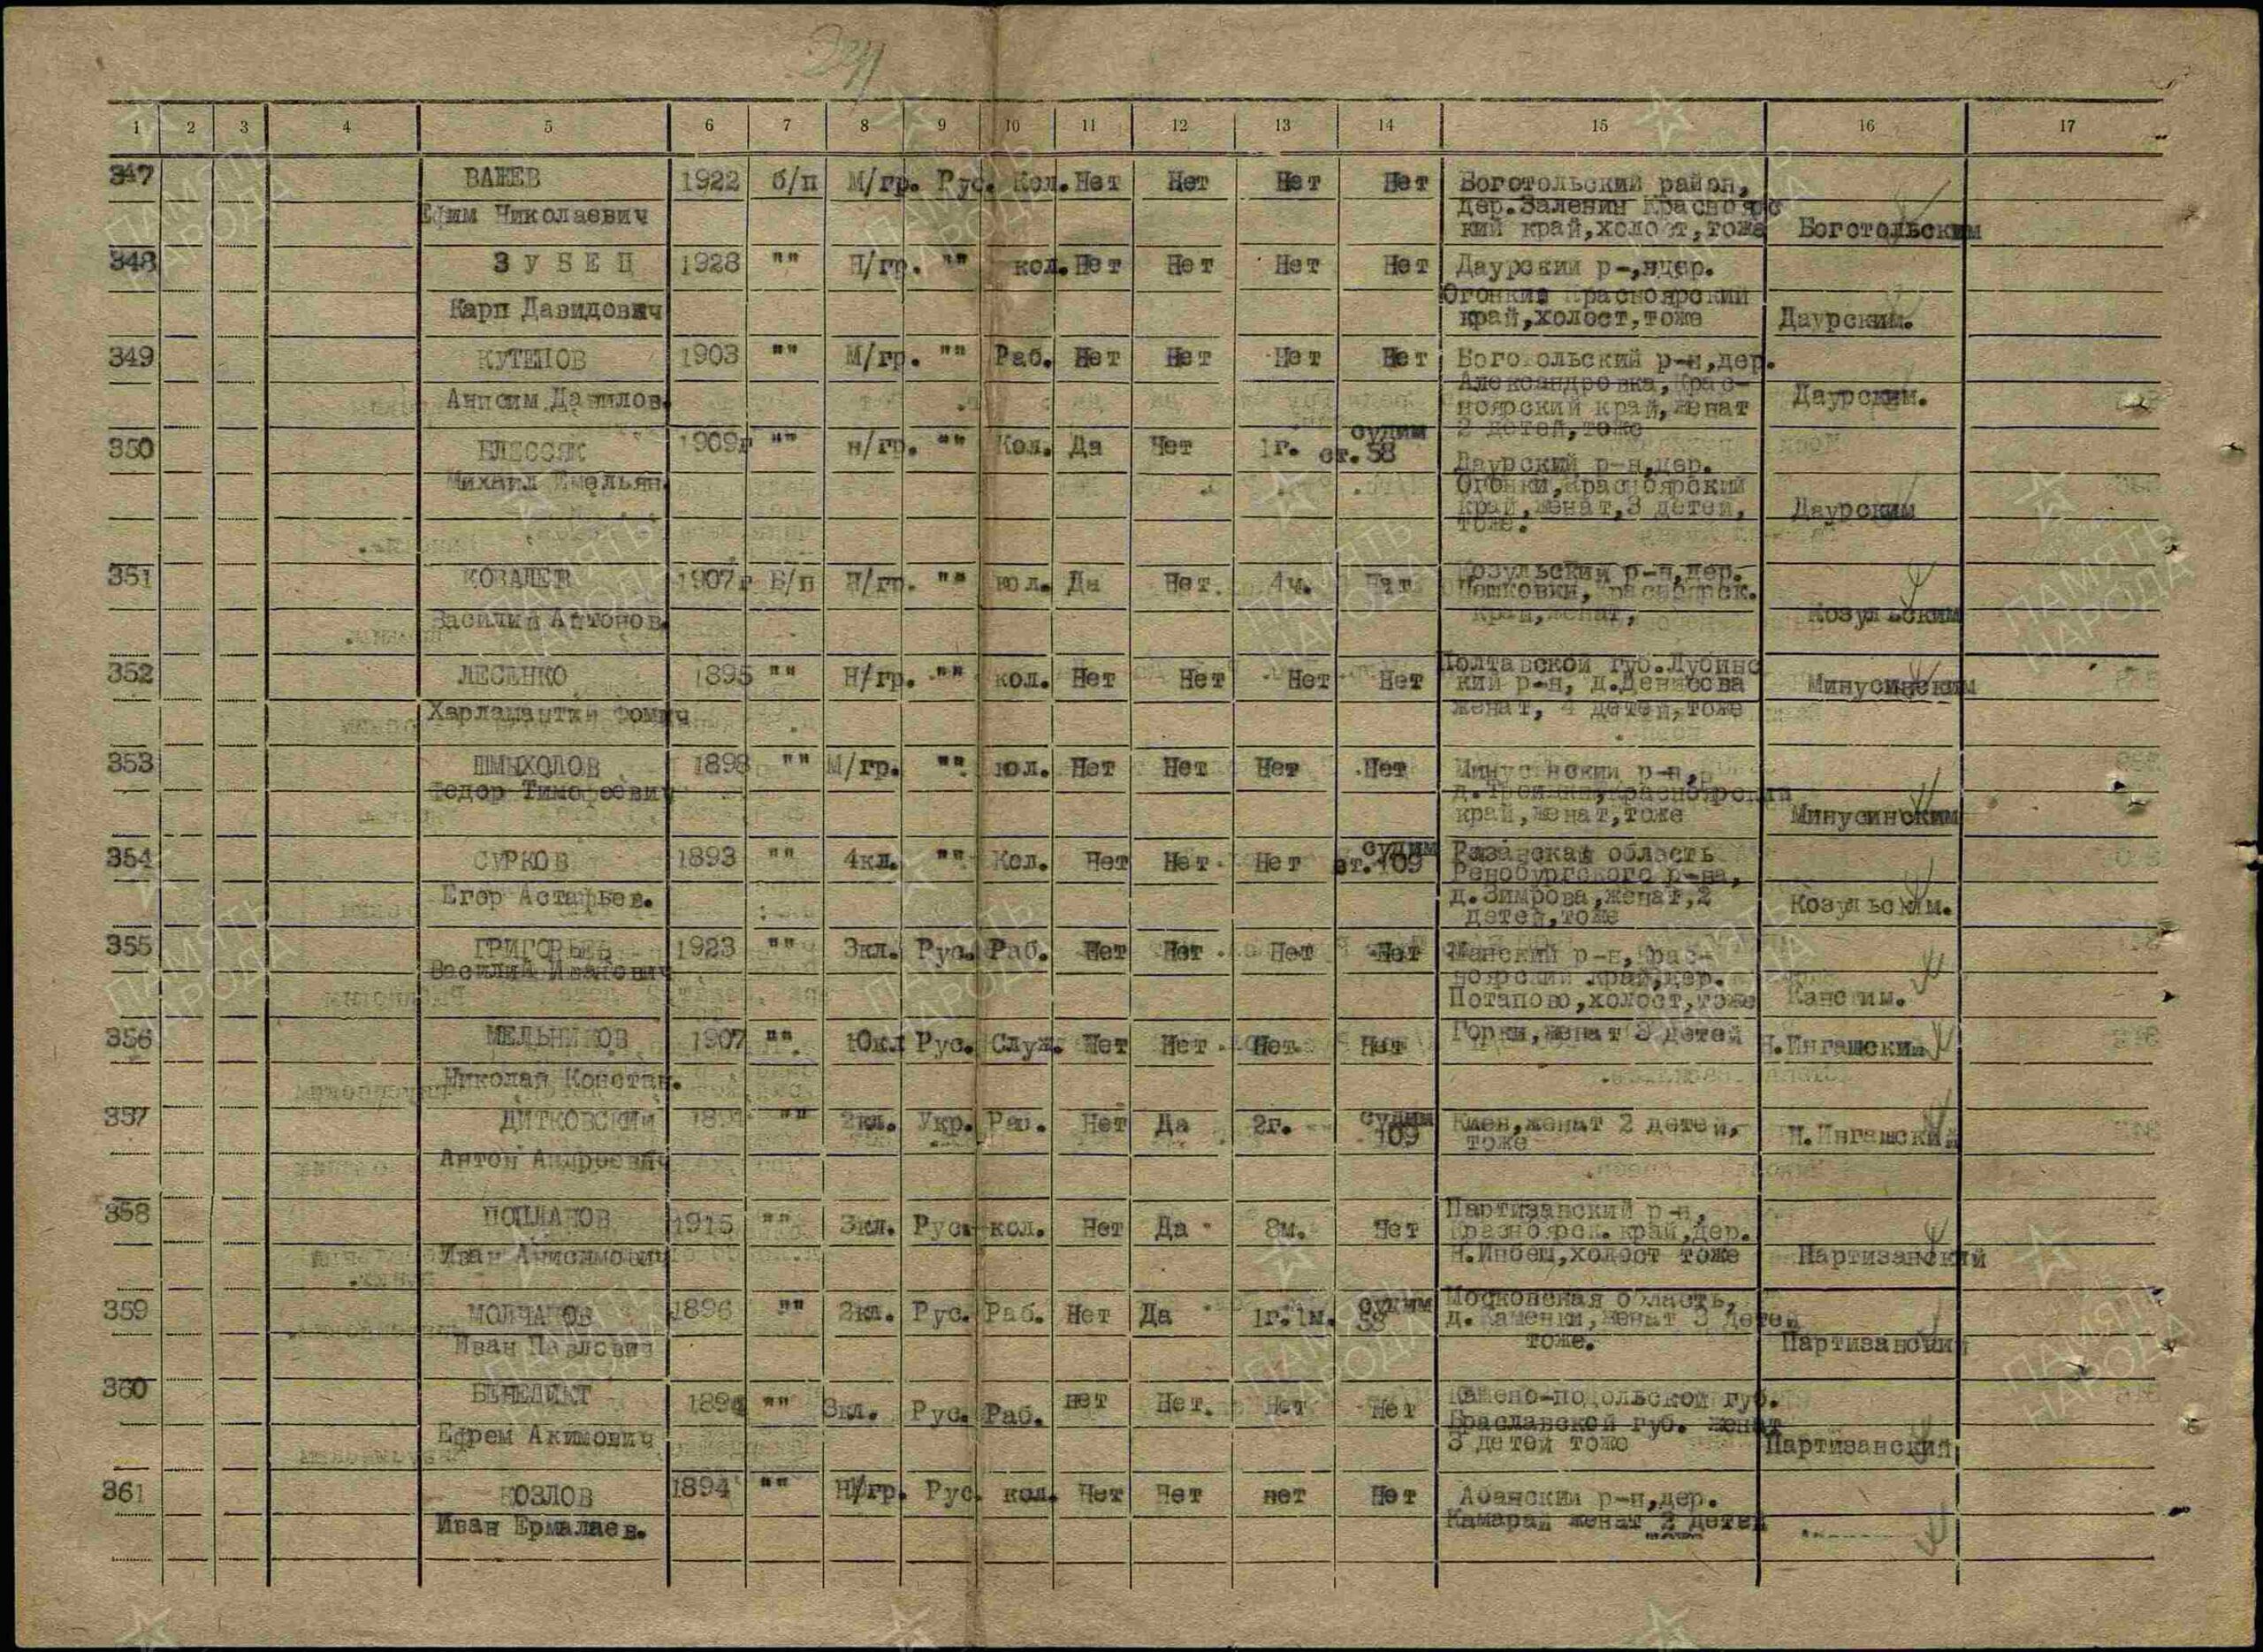 1 2 3 4 5 6 7 8 9 10 11 12 13 14 15 16 17
347 ВАЖЕВ 1922 б/п М/гр. Рус. Кол. Нет Нет Нет Нет Боготольский район,
дер.Залении Краснояр
Ефим Николаевич кий край,холост,тоже Боготольским
348 З У Б Е Ц 1923 "" Н/гр. "" кол. Нет Нет Нет Нет Даурский р-,ндер.
Огоньки Красноярский
Карп Давидович край,холост,тоже Даурским.
349 КУТЕПОВ 1903 "" М/гр. "" Раб. Нет Нет Нет Нет Боготольский р-н,дер.
Александровка,Крас-
Анисим Данилов. ноярский край,женат Даурским.
2 детей,тоже
350 1909г "" н/гр. "" Кол. Да Нет 1г. судим
ст.58
Даурский р-н,дер.
Михаил Емельян. Огоньки,Красноярский
край,женат,3 детей, Даурским
тоже.
351 КОВАЛЕВ 1907г Б/п Н/гр. "" кол. Да Нет. 4м. Нет Козульский р-н,дер.
Красноярск.
Василий Антонов. край,женат, Козульским
352 ЛЕСЕНКО 1895 "" Н/гр. "" кол. Нет Нет Нет Нет Полтавской губ.Лубинс
кий р-н, д.Денисова Минусинским
Харлампий Фомич женат, 4 детей,тоже
353 ШМЫХОЛОВ 1898 "" М/гр. "" кол. Нет Нет Нет Нет Минусинский р-н,
Федор Тимофеевич д.Троицка,Красноярский
край,женат,тоже Минусинским
354 СУРКОВ 1893 "" 4кл. "" Кол. Нет Нет Нет судим
ст.109 Рязанская область
Ренобургского р-на,
Егор Астафьев. д.Зимрова,женат,2 Козульским.
детей,тоже
355 ГРИГОРЬЕВ 1923 "" 3кл. Рус. Раб. Нет Нет Нет Нет Манский р-н, Крас-
Василий Иванович ноярский край,дер.
Потапово,холост,тоже Канским.
356 МЕЛЬНИКОВ 1907 "" 10кл Рус. Служ. Нет Нет Нет Нет Горки,женат 3 детей Н.Ингашский
Николай Констан.
357 ДИТКОВСКИЙ "" 2кл. Укр. Раб. Нет Да 2г. судим
109 Киев,женат 2 детей,
тоже Н.Ингашский
Антон Андреевич
358 1915 "" 3кл. Рус. кол. Нет Да 8м. Нет Партизанский р-н,
Красноярск. край,дер.
Иван Анисимович Н.Инбеш,холост тоже Партизанский
359 МОЛЧАНОВ 1896 "" 2кл. Рус. Раб. Нет Да 1г.1м. судим
58 Московская область,
д.Каменки,женат 3 детей
Иван Павлович тоже. Партизанский
360 БЕНЕДИКТ "" 3кл. Рус. Раб. нет Нет. Нет Нет Камено-подольской губ.
Браславской губ. женат
Ефрем Акимович 3 детей тоже Партизанский
361 КОЗЛОВ 1894 "" Н/гр. Рус. кол. Нет Нет нет Нет Абанский р-н,дер.
Иван Ермалаев. Камарай женат 2 детей